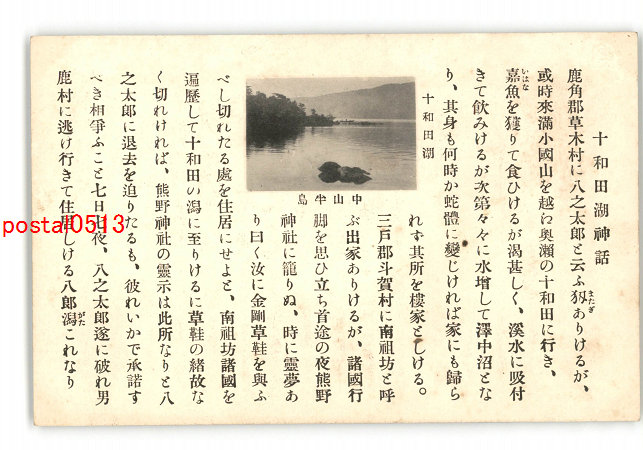 十和田湖神話
鹿角郡草木村に八之太郎と云ふ𭸽またぎありけるが、
或時來滿小國山を越ね奥瀬の十和田に行き、
嘉魚いはなを獲りて食ひけるが渇甚しく、溪水に吸付
きて飲みけるが次第々々に水增して澤中沼とな
り、其身も何時か蛇體に變じければ家にも歸ら
れず其所を棲家としける。
三戸郡斗賀村に南祖坊と呼
ぶ出家ありけるが、諸國行
脚を思ひ立ち首途の夜熊野
神社に籠りぬ、時に靈夢あ
り曰く汝に金剛草鞋を與ふ
べし切れたる處を住居にせよと、南祖坊諸國を
遍歷して十和田の潟に至りけるに草鞋の緒故な
く切れければ、熊野神社の靈示は此所なりと八
之太郎に退去を迫りたるも、彼れいかで承諾す
べき相爭ふこと七日七夜、八之太郎遂に破れ男
鹿村に逃げ行きて住居しける八郎潟がたこれなり
十和田湖
中山半島
postal0513